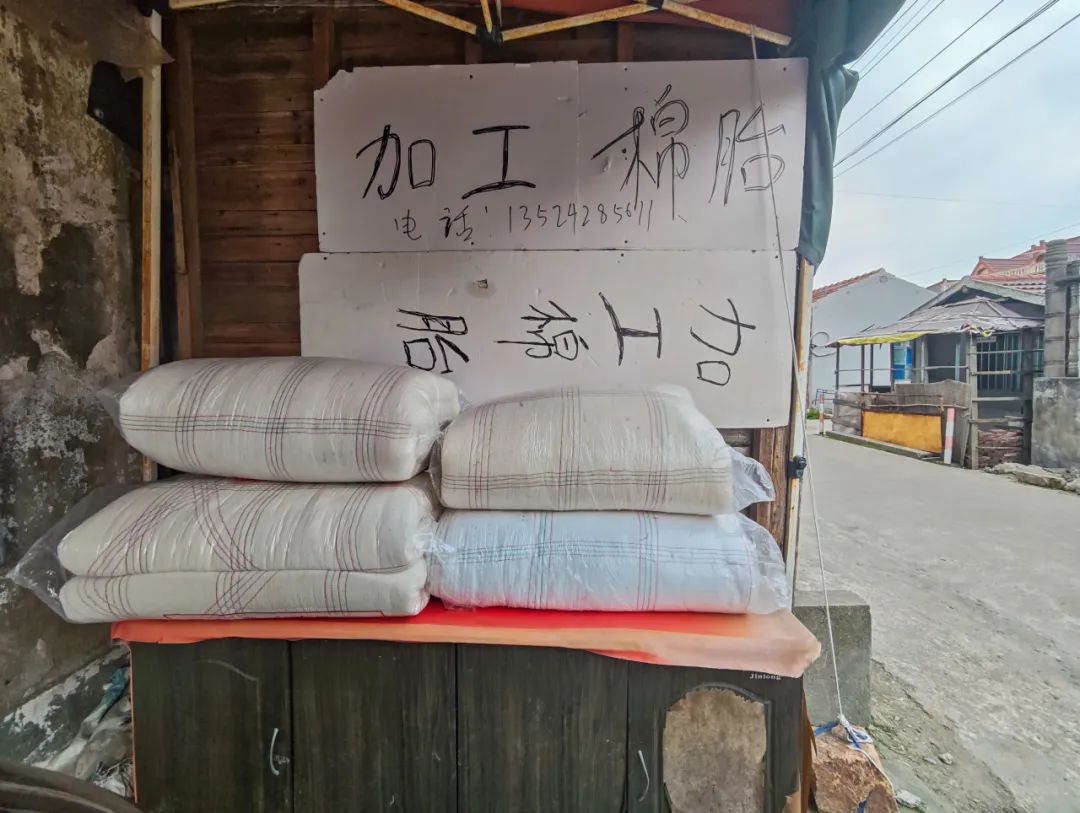 加工棉胎
电话:13524285671
加工棉胎
Jinlong